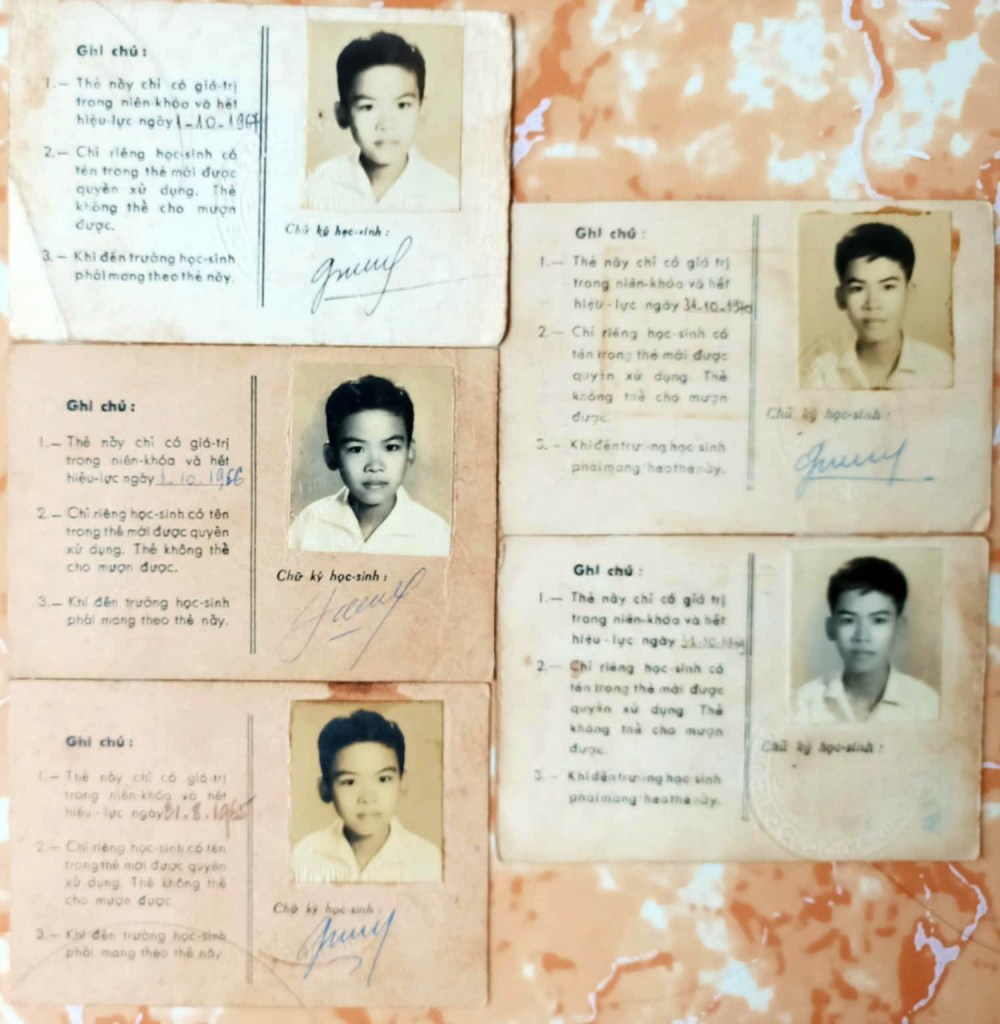 Ghi chú :
1.— Thẻ này chỉ có giá-trị
trong niên-khóa và hết
hiệu-lực ngày 1-10-1967
2.— Chỉ riêng học-sinh có
tên trong thẻ mới được
quyền xử dụng. Thẻ
không thể cho mượn
được.
3.— Khi đến trường học-sinh
phải mang theo thẻ này.
Chữ ký học-sinh :
Ghi chú :
1.— Thẻ này chỉ có giá-trị
trong niên-khóa và hết
hiệu-lực ngày 1.10.1966
2.— Chỉ riêng học-sinh có tên
trong thẻ mới được quyền
xử dụng. Thẻ không thể
cho mượn được.
3.— Khi đến trường học-sinh
phải mang theo thẻ này.
Chữ ký học-sinh :
Ghi chú :
1.— Thẻ này chỉ có giá-trị
trong niên-khóa và hết
hiệu-lực ngày 31.8.1965
2.— Chỉ riêng học-sinh có tên
trong thẻ mới được quyền
xử dụng. Thẻ không thể
cho mượn được.
3.— Khi đến trường học-sinh
phải mang theo thẻ này
Chữ ký học-sinh :
Ghi chú :
1.— Thẻ này chỉ có giá trị
trong niên-khóa và hết
hiệu-lực ngày 31-10-1970
2.— Chỉ riêng học-sinh có
tên trong thẻ mới được
quyền xử dụng. Thẻ
không thể cho mượn
được.
3.— Khi đến trường học sinh
phải mang theo thẻ này.
Chữ ký học-sinh :
Ghi chú :
1.— Thẻ này chỉ có giá trị
trong niên-khóa và hết
hiệu-lực ngày
2.— Chỉ riêng học-sinh có
tên trong thẻ mới được
quyền xử dụng. Thẻ
không thể cho mượn
được.
3.— Khi đến trường học sinh
phải mang theo thẻ này.
Chữ ký học-sinh :